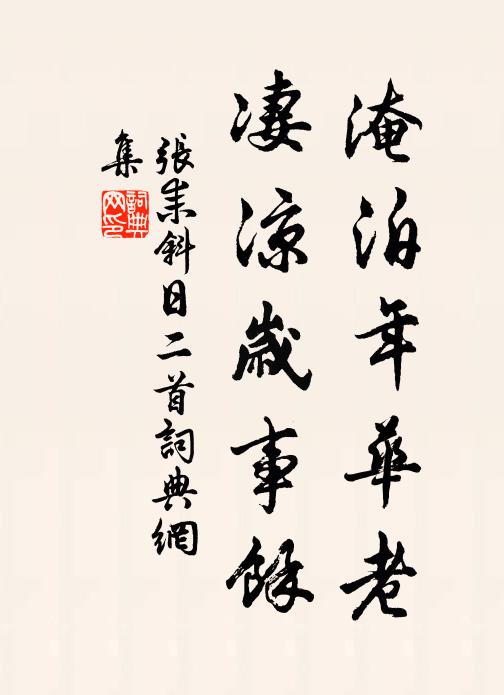 淹泊年華老
凄涼歲事餘
張耒斜日二首詞典網
集
詞典
网印